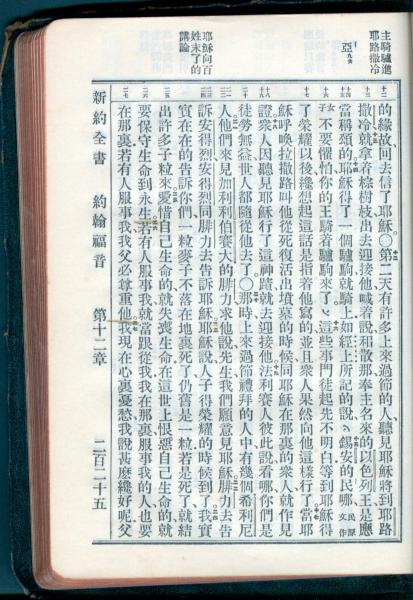 主騎驢進
耶路撒冷
亞九九
耶穌向百
姓末了的
講論
的緣故回去信了耶穌○第二天有許多上來過節的人聽見耶穌將到耶路
撒冷就拿着棕樹枝出去迎接他喊着說和散那奉主名來的以色列王是應
當稱頌的耶穌得了一個驢駒就騎上如經上所記的說錫安的民哪民原文作
女子不要懼怕你的王騎着驢駒來了這些事門徒起先不明白等到耶穌得
了榮耀以後纔想起這話是指着他寫的並且衆人果然向他這樣行了當耶
穌呼喚拉撒路叫他從死復活出墳墓的時候同耶穌在那裏的衆人就作見
證衆人因聽見耶穌行了這神蹟就去迎接他法利賽人彼此說看哪你們是
徒勞無益世人都隨從他去了○那時上來過節禮拜的人中有幾個希利尼
人他們來見加利利伯賽大的腓力求他說先生我們願意見耶穌腓力去告
訴安得烈安得烈同腓力去告訴耶穌耶穌說人子得榮耀的時候到了我實
實在在的告訴你們一粒麥子不落在地裏死了仍舊是一粒若是死了就結
出許多子粒來愛惜自己生命的就失喪生命在這世上恨惡自己生命的就
要保守生命到永生若有人服事我就當跟從我我在那裏服事我的人也要
在那裏若有人服事我我父必尊重他我現在心裏憂愁我說甚麼纔好呢父
新約全書 約翰福音 第十二章 二百二十五